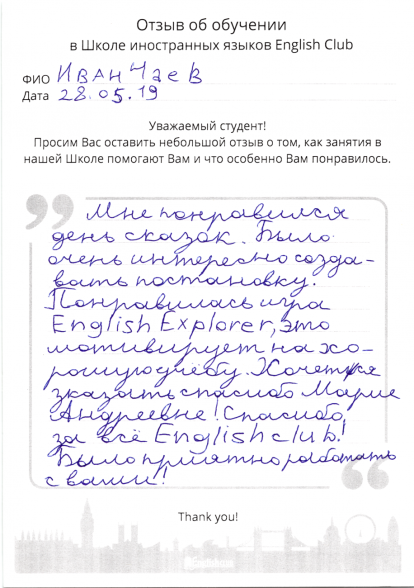 Отзыв об обучении
в Школе иностранных языков English Club
ФИО Иван Чаев
Дата 28.05.19
Уважаемый студент!
Просим Вас оставить небольшой отзыв о том, как занятия в
нашей Школе помогают Вам и что особенно Вам понравилось.
Мне понравился
день сказок. Было
очень интересно созда-
вать постановку.
Понравилась игра
English Explorer, это
мотивирует на хо-
рошую учёбу. Хочется
зказать спасибо Марие
Андреевне! Спасибо,
за всё English club!
Было приятно работать
с вами!!
Thank you!